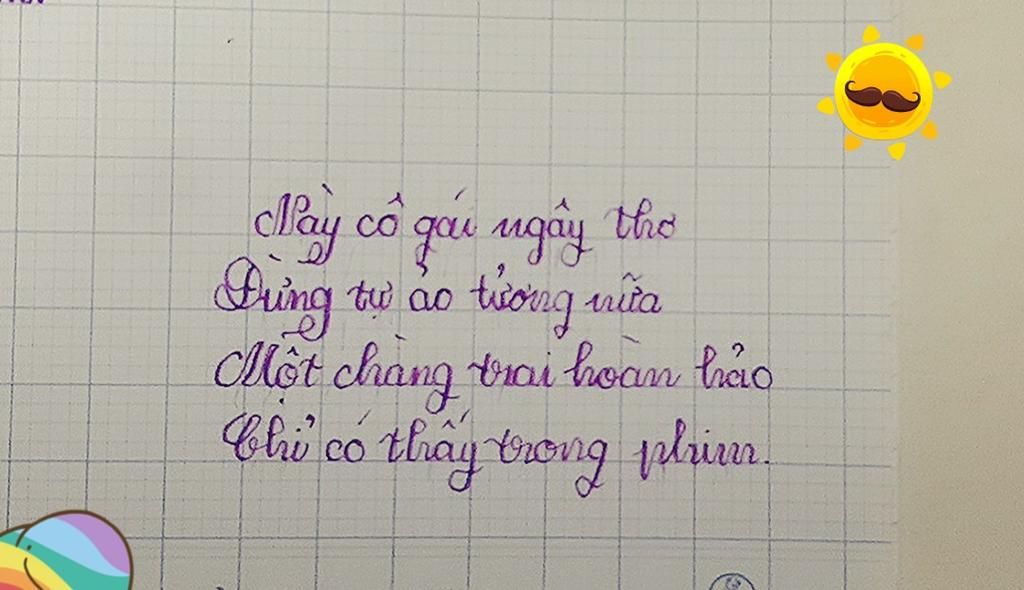 Này cô gái ngây thơ
Đừng tự ảo tưởng nữa
Một chàng trai hoàn hảo
Chỉ có thấy trong phim.